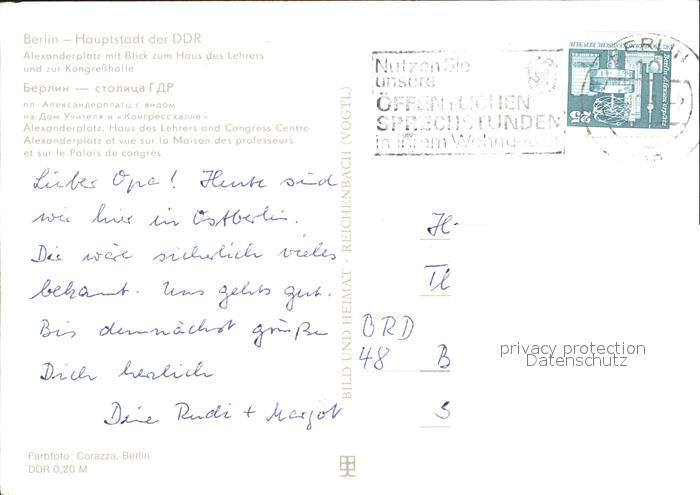 Berlin – Hauptstadt der DDR
Alexanderplatz mit Blick zum Haus des Lehrers
und zur Kongreßhalle
Берлин — столица ГДР
пл. Александерплатц с видом
на Дом Учителя и «Конгрессхалле»
Alexanderplatz, Haus des Lehrers and Congress Centre
Alexanderplatz et vue sur la Maison des professeurs
et sur le Palais de congrès
Lieber Opa! Heute sind
wir hier in Ostberlin.
Dir wäre sicherlich vieles
bekannt. Uns gehts gut.
Bis demnächst grüßen
Dich herzlich
Deine Rudi + Margot
Farbfoto: Corazza, Berlin
DDR 0,20 M
BILD UND HEIMAT · REICHENBACH (VOGTL)
Nutzen Sie
unsere
ÖFFENTLICHEN
SPRECHSTUNDEN
in Ihrem Wohngebiet
BERLIN
Berlin, Alexanderplatz
25
H.
Tl
BRD
48 B
S
privacy protection
Datenschutz